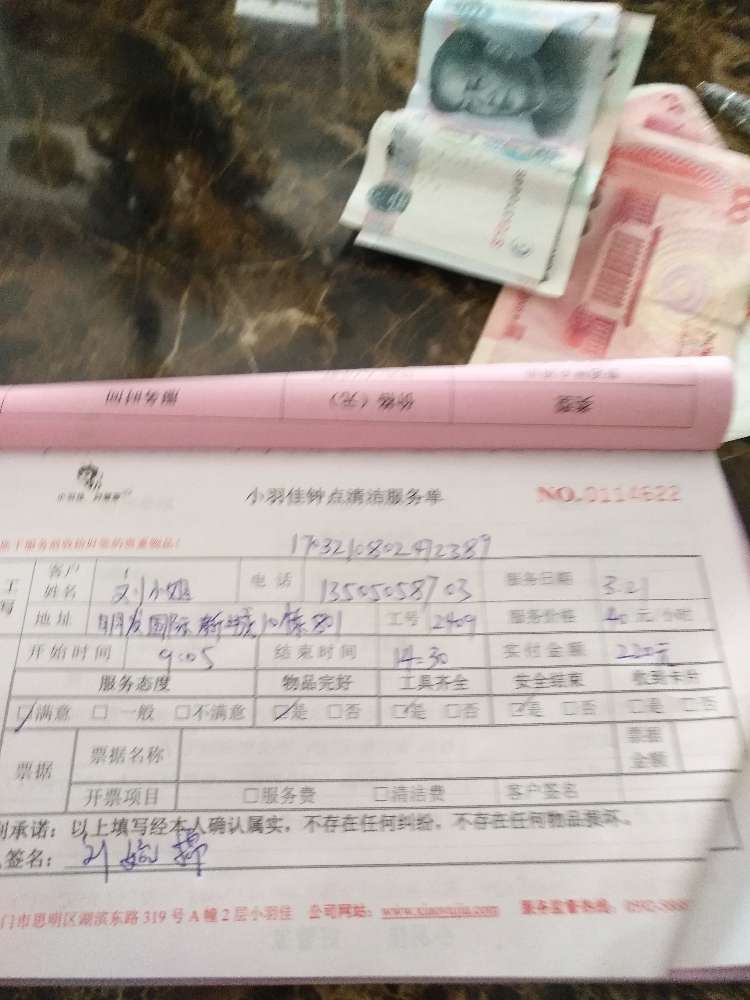 服务时间 价格（元） 类型
小羽佳钟点清洁服务单 NO.0114622
1703210802492389
客户姓名 刘小姐 电话 13505058703 服务日期 3.21
地址 明发国际新城10栋801 工号 2409 服务价格 40元/小时
开始时间 9:05 结束时间 14:30 实付金额 220元
服务态度 物品完好 工具齐全 安全结束 收到卡片
☑满意 □一般 □不满意 ☑是 □否 ☑是 □否 ☑是 □否 □是 □否
票据 票据名称 票据金额
开票项目 □服务费 □清洁费 客户签名
承诺：以上填写经本人确认属实，不存在任何纠纷，不存在任何物品损坏。
签名：
门市思明区湖滨东路319号A幢2层小羽佳 公司网站：www.xiaoyujia.com 服务监督热线：0592-